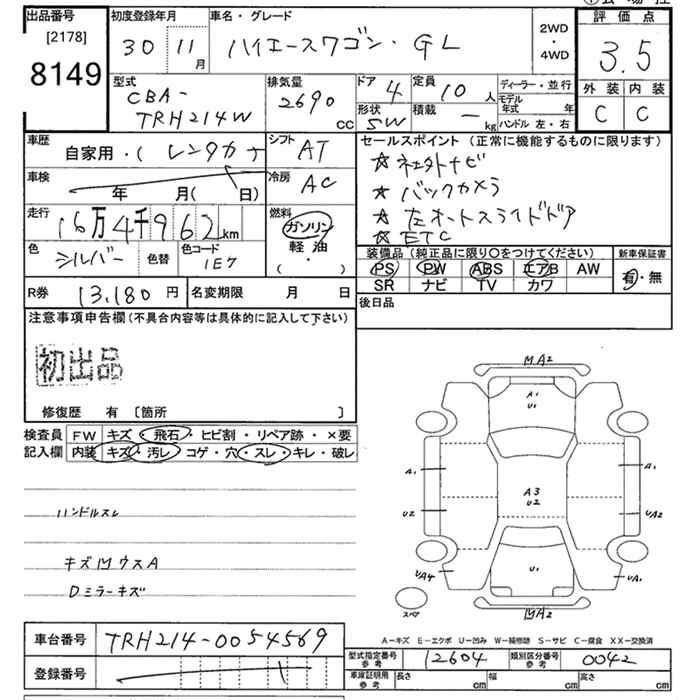 出品番号
[2178]
8149
初度登録年月
30 11月
車名・グレード
ハイエースワゴン・GL
2WD
・
4WD
評価点
3.5
外装 内装
C C
型式
CBA-
TRH214W
排気量
2690
CC
ドア 4
形状 SW
定員 10 人
積載 ー kg
ディーラー・並行
モデル年式 年
ハンドル 左・右
車歴
自家用・(レンタカー
車検
年 月( 日)
走行
16万4千962km
色 シルバー 色替 色コード 1E7
シフト AT
冷房 AC
燃料
ガソリン
軽油
( ・ )
セールスポイント(正常に機能するものに限ります)
☆社外ナビ
☆バックカメラ
☆左オートスライドドア
☆ETC
装備品(純正品に限り○をつけてください)
PS PW ABS エアB AW
SR ナビ TV カワ
新車保証書
有・無
R券 13,180円 名変期限 月 日
後日品
注意事項申告欄(不具合内容等は具体的に記入して下さい)
初出品
修復歴 有〔箇所 〕
検査員記入欄
FW キズ・飛石・ヒビ割・リペア跡・×要
内装 キズ・汚レ・コゲ・穴・スレ・キレ・破レ
ハンドルスレ
キズMウスA
Dミラーキズ
MA2
A1
U1
A1
A1
A3
U2
U2
UA2
UA4
U1
UA1
スペア
MA2
A-キズ E-エクボ U-凹み W-補修跡 S-サビ C-腐食 XX-交換済
車台番号 TRH214-0054569
登録番号
型式指定番号 参考 12604 類別区分番号 参考 0042
車庫証明用 参考 長さ cm 幅 cm 高さ cm